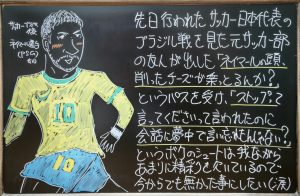 サッカーブラジル
代表
ネイマール選手
(PSG)
先日行われたサッカー日本代表の
ブラジル戦を見た元サッカー部
の友人が出した「ネイマールの頭、
削ったチーズか乗っとるんか?」
というパスを受け、「ストップって
言ってくださいって言われたのに
会話に夢中で言い忘れたんじゃない?」
というボクのシュートは我ながら
あまりに精彩を欠いているので
今からでも無かった事にしたい(涙)
10
10